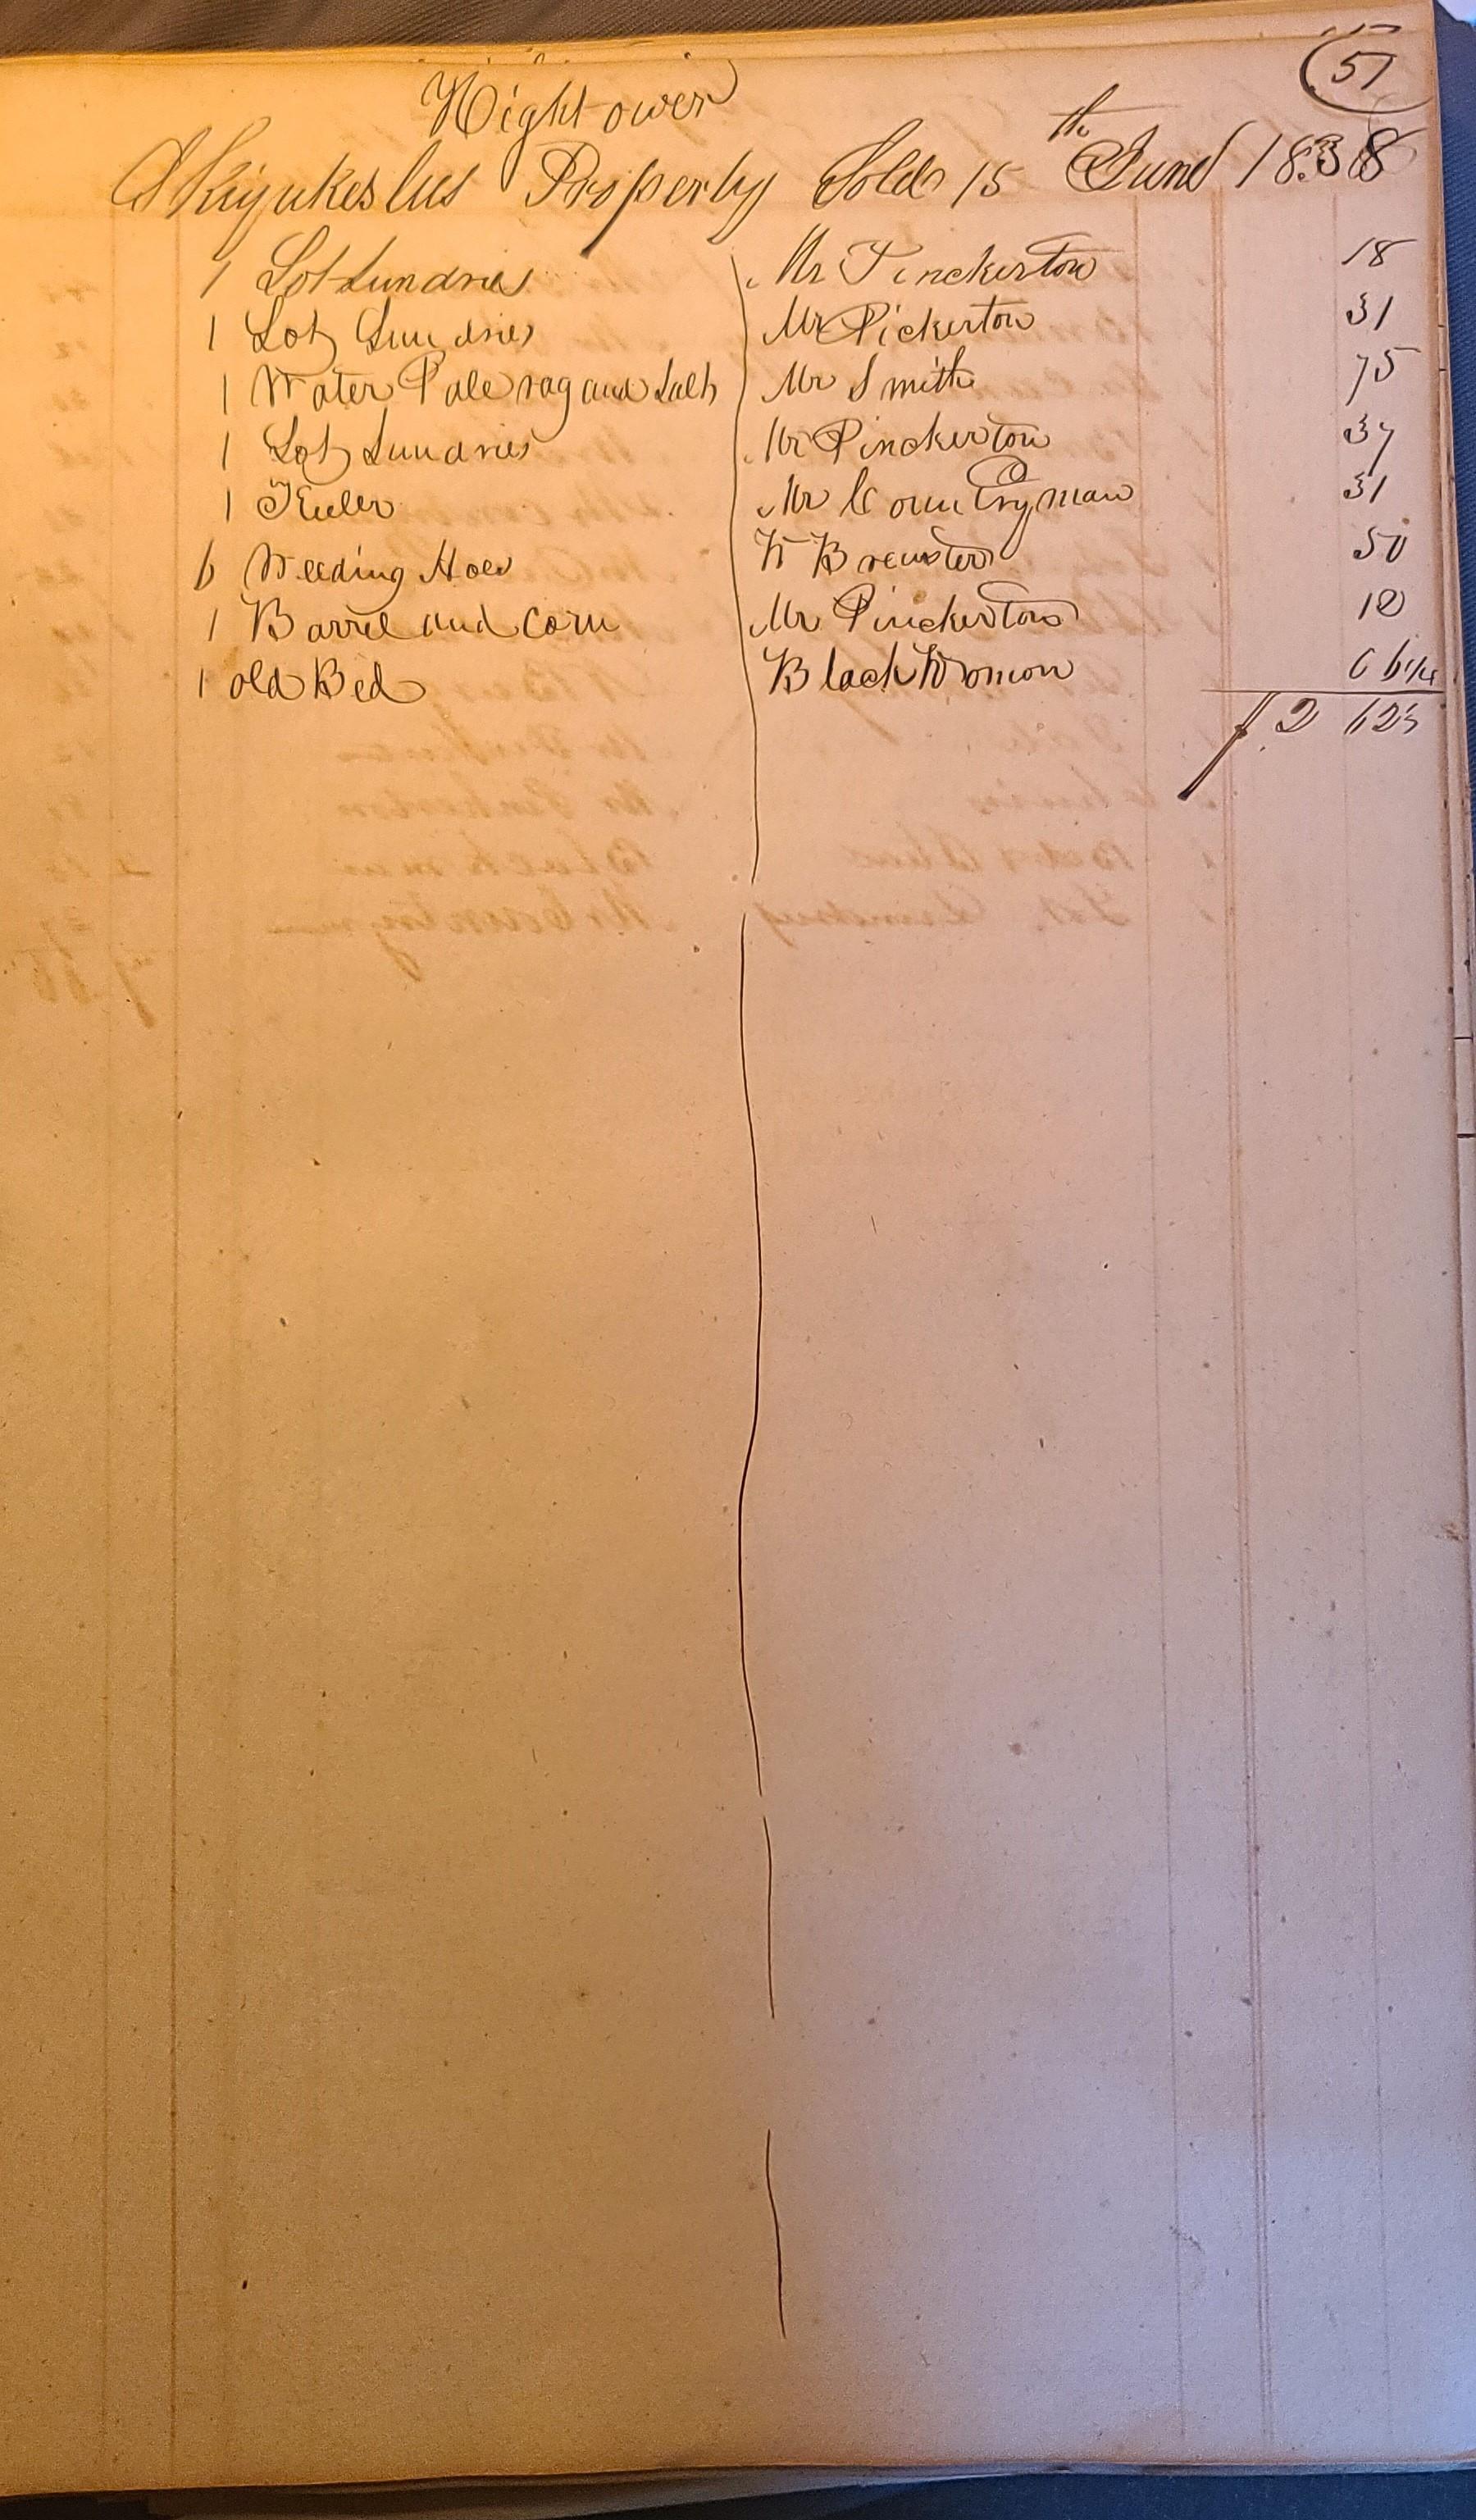 57
Hightower
Skiyukeslus Property Sold 15th June 1838
1 Lot Sundries Mr Pinckerton 18
1 Lot Sundries Mr Pickerton 31
1 Water Pale rag and Salt Mr Smith 75
1 Lot Sundries Mr Pinckerton 37
1 Keeler Mr Countryman 31
6 Weeding Hoes W Brewster 50
1 Barrel and Corn Mr Pinckerton 12
1 old Bed Black Womon 6 1/4
2 62